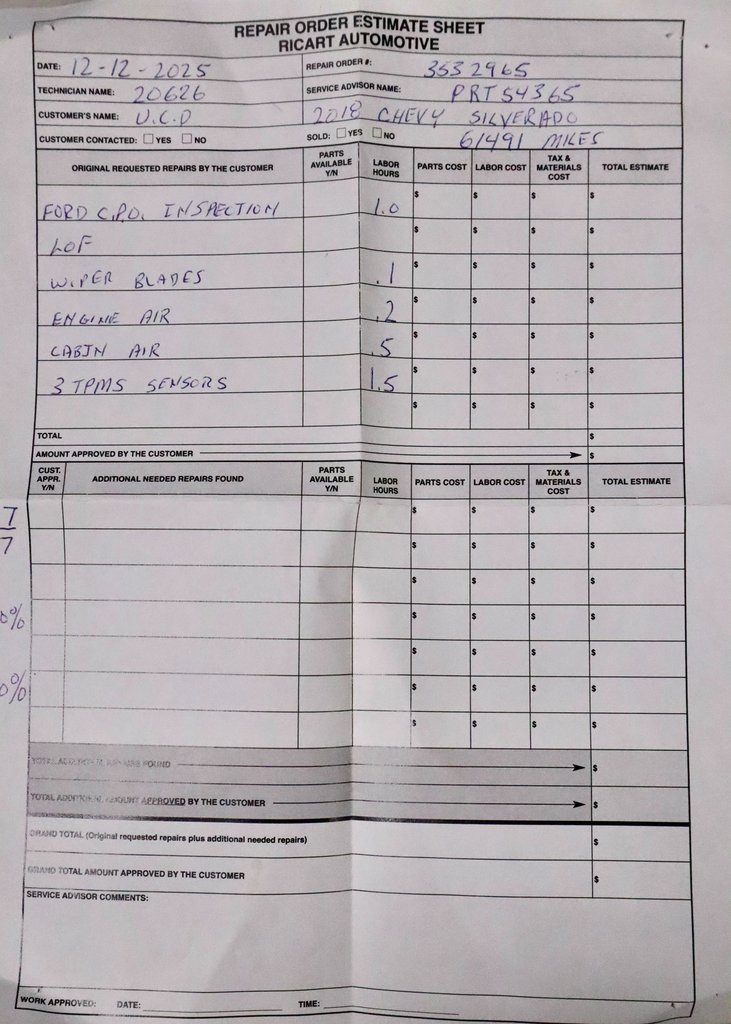 REPAIR ORDER ESTIMATE SHEET
RICART AUTOMOTIVE
DATE: 12-12-2025 REPAIR ORDER #: 3532965
TECHNICIAN NAME: 20626 SERVICE ADVISOR NAME: PRT54365
CUSTOMER'S NAME: U.C.D 2018 CHEVY SILVERADO
CUSTOMER CONTACTED: ☐ YES ☐ NO SOLD: ☐ YES ☐ NO 61491 MILES
ORIGINAL REQUESTED REPAIRS BY THE CUSTOMER PARTS AVAILABLE Y/N LABOR HOURS PARTS COST LABOR COST TAX & MATERIALS COST TOTAL ESTIMATE
FORD C.P.O. INSPECTION 1.0 $ $ $ $
LOF $ $ $ $
WIPER BLADES .1 $ $ $ $
ENGINE AIR .2 $ $ $ $
CABIN AIR .5 $ $ $ $
3 TPMS SENSORS 1.5 $ $ $ $
$ $ $ $
TOTAL $
AMOUNT APPROVED BY THE CUSTOMER $
CUST. APPR. Y/N ADDITIONAL NEEDED REPAIRS FOUND PARTS AVAILABLE Y/N LABOR HOURS PARTS COST LABOR COST TAX & MATERIALS COST TOTAL ESTIMATE
7 $ $ $ $
7 $ $ $ $
$ $ $ $
0% $ $ $ $
$ $ $ $
0% $ $ $ $
$ $ $ $
TOTAL ADDITIONAL REPAIRS FOUND $
TOTAL ADDITIONAL AMOUNT APPROVED BY THE CUSTOMER $
GRAND TOTAL (Original requested repairs plus additional needed repairs) $
GRAND TOTAL AMOUNT APPROVED BY THE CUSTOMER $
SERVICE ADVISOR COMMENTS:
WORK APPROVED: DATE: TIME: